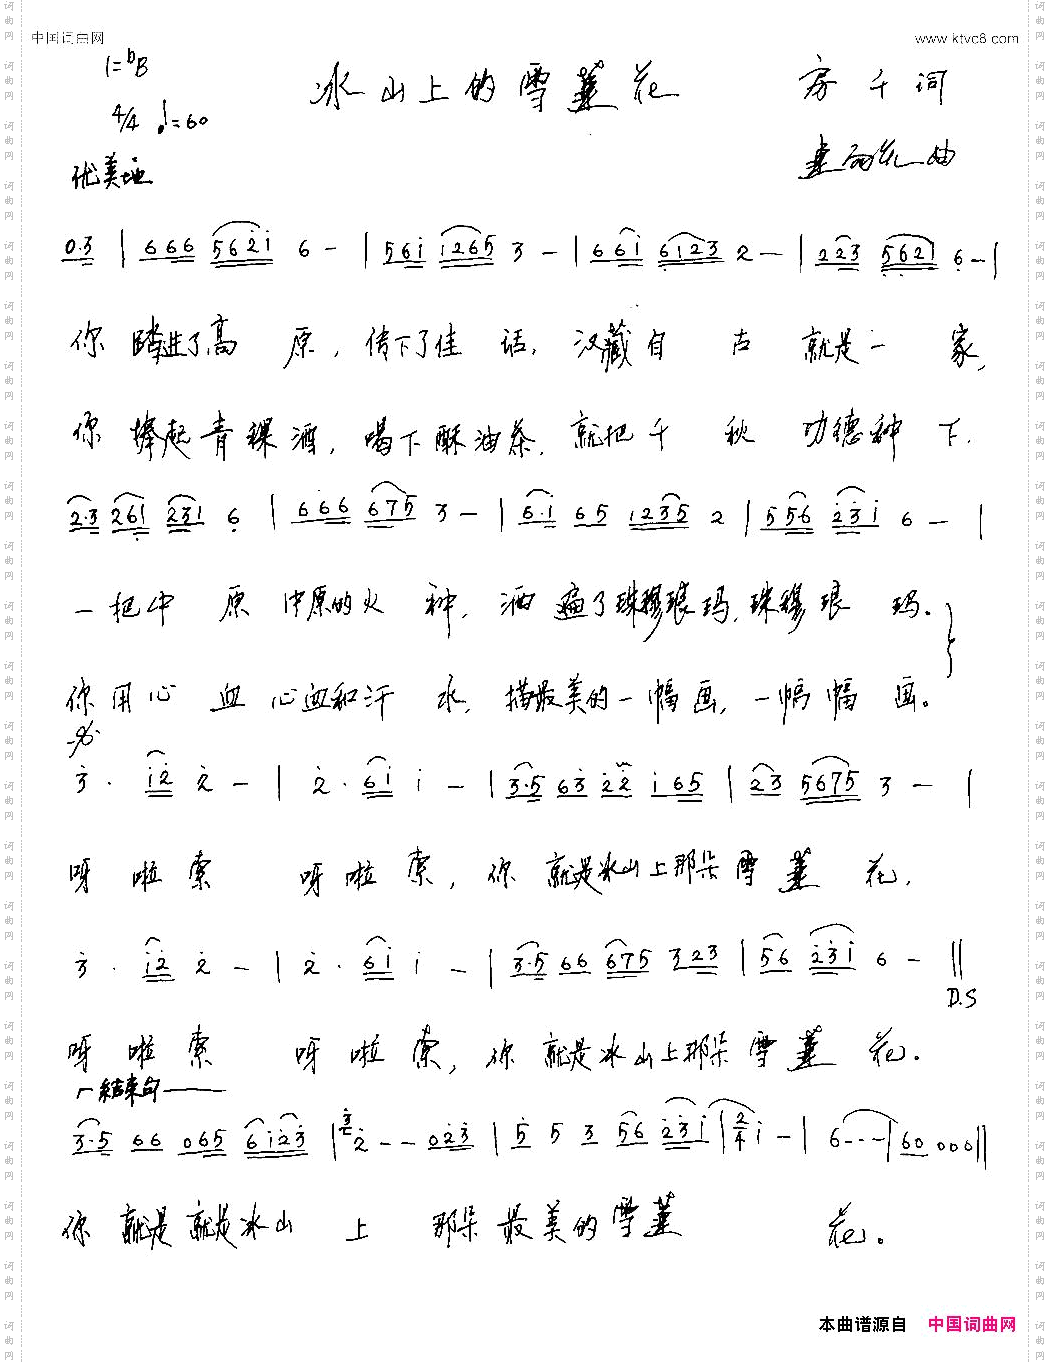 中国词曲网 www.ktvc8.com
1=bB 冰山上的雪莲花 房千词
4/4 ♩=60
优美地 曲
0.3 | 666 5621 6 - | 561 1265 3 - | 661 6123 2 - | 223 5621 6 - |
你 踏进了高 原，传下了佳 话，汉藏自 古 就是一 家，
你 捧起青稞酒，喝下酥油茶，就把千 秋 功德种 下．
2.3 261 231 6 | 666 675 3 - | 6.1 65 1235 2 | 556 231 6 - |
一把中 原 中原的火 种，洒遍了珠穆琅玛，珠穆琅 玛。
你用心 血 心血和汗 水，描最美的一幅画，一幅幅 画。
3 . 12 2 - | 2 . 61 1 - | 3.5 63 22 165 | 23 5675 3 - |
呀 啦索 呀啦索，你 就是冰山上那朵雪莲 花．
3 . 12 2 - | 2 . 61 1 - | 3.5 66 675 323 | 56 231 6 - ||
D.S
呀 啦索 呀啦索，你 就是冰山上那朵雪莲 花．
结束句
3.5 66 065 6123 | 3 2 - - 023 | 5 5 3 56 231 | 2/4 1 - | 6 - - - | 60 000 ||
你 就是就是冰山 上 那朵最美的雪莲 花。
本曲谱源自 中国词曲网